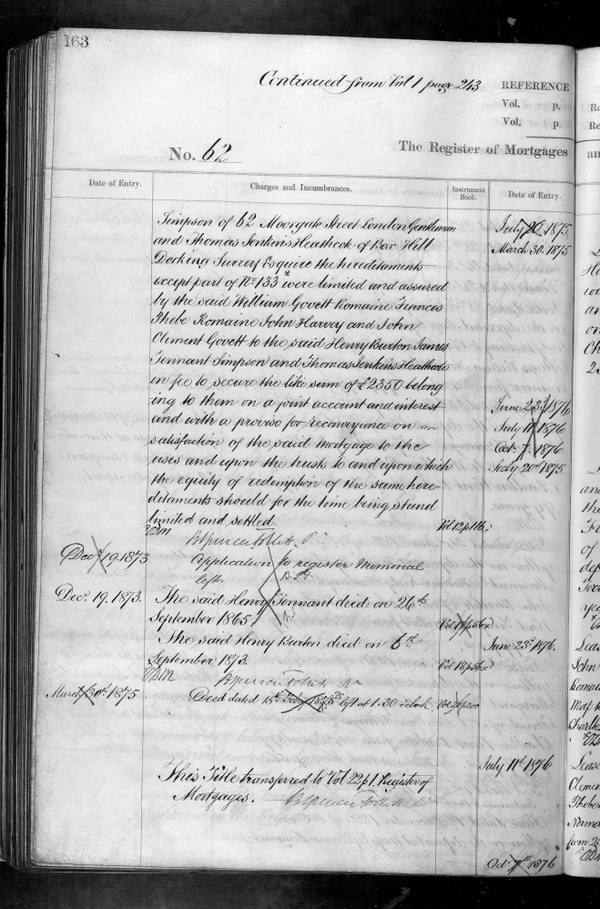 163
Continued from Vol 1 page 243
REFERENCE
Vol. p.
Vol. p.
No. 62
The Register of Mortgages
Date of Entry.
Charges and Incumbrances.
Instrument Book.
Date of Entry.
Simpson of 62 Moorgate Street London Gentleman
July 20. 1875
and Thomas Jenkins Heathcok of Box Hill
March 30. 1875
Dorking Surrey Esquire the hereditaments
except part of No 133 were limited and assured
by the said William Govett Romaine Frances
Phebe Romaine John Harvey and John
Clement Govett to the said Henry Burton James
Tennant Simpson and Thomas Jenkins Heathcok
in fee to secure the like sum of £2350 belong
ing to them on a joint account and interest
June 23d 1876
and with a proviso for reconveyance on
July 11th 1876
satisfaction of the said mortgage to the
Oct. 7. 1876
uses and upon the trusts to and upon which
July 20th 1875
the equity of redemption of the same here-
ditaments should for the time being stand
limited and settled.
Vol 12 p 116.
Decr 19. 1873
Application to register Memorial
left
Decr. 19. 1873.
The said Henry Tennant died on 26th
September 1865
The said Henry Burton died on 6th
June 23d 1876.
September 1873.
March 30th 1875
Deed dated left at 1.30 o'clock
July 11th 1876
This Title transferred to Vol 22 p 1. Register of
Mortgages.
Oct 7th 1876